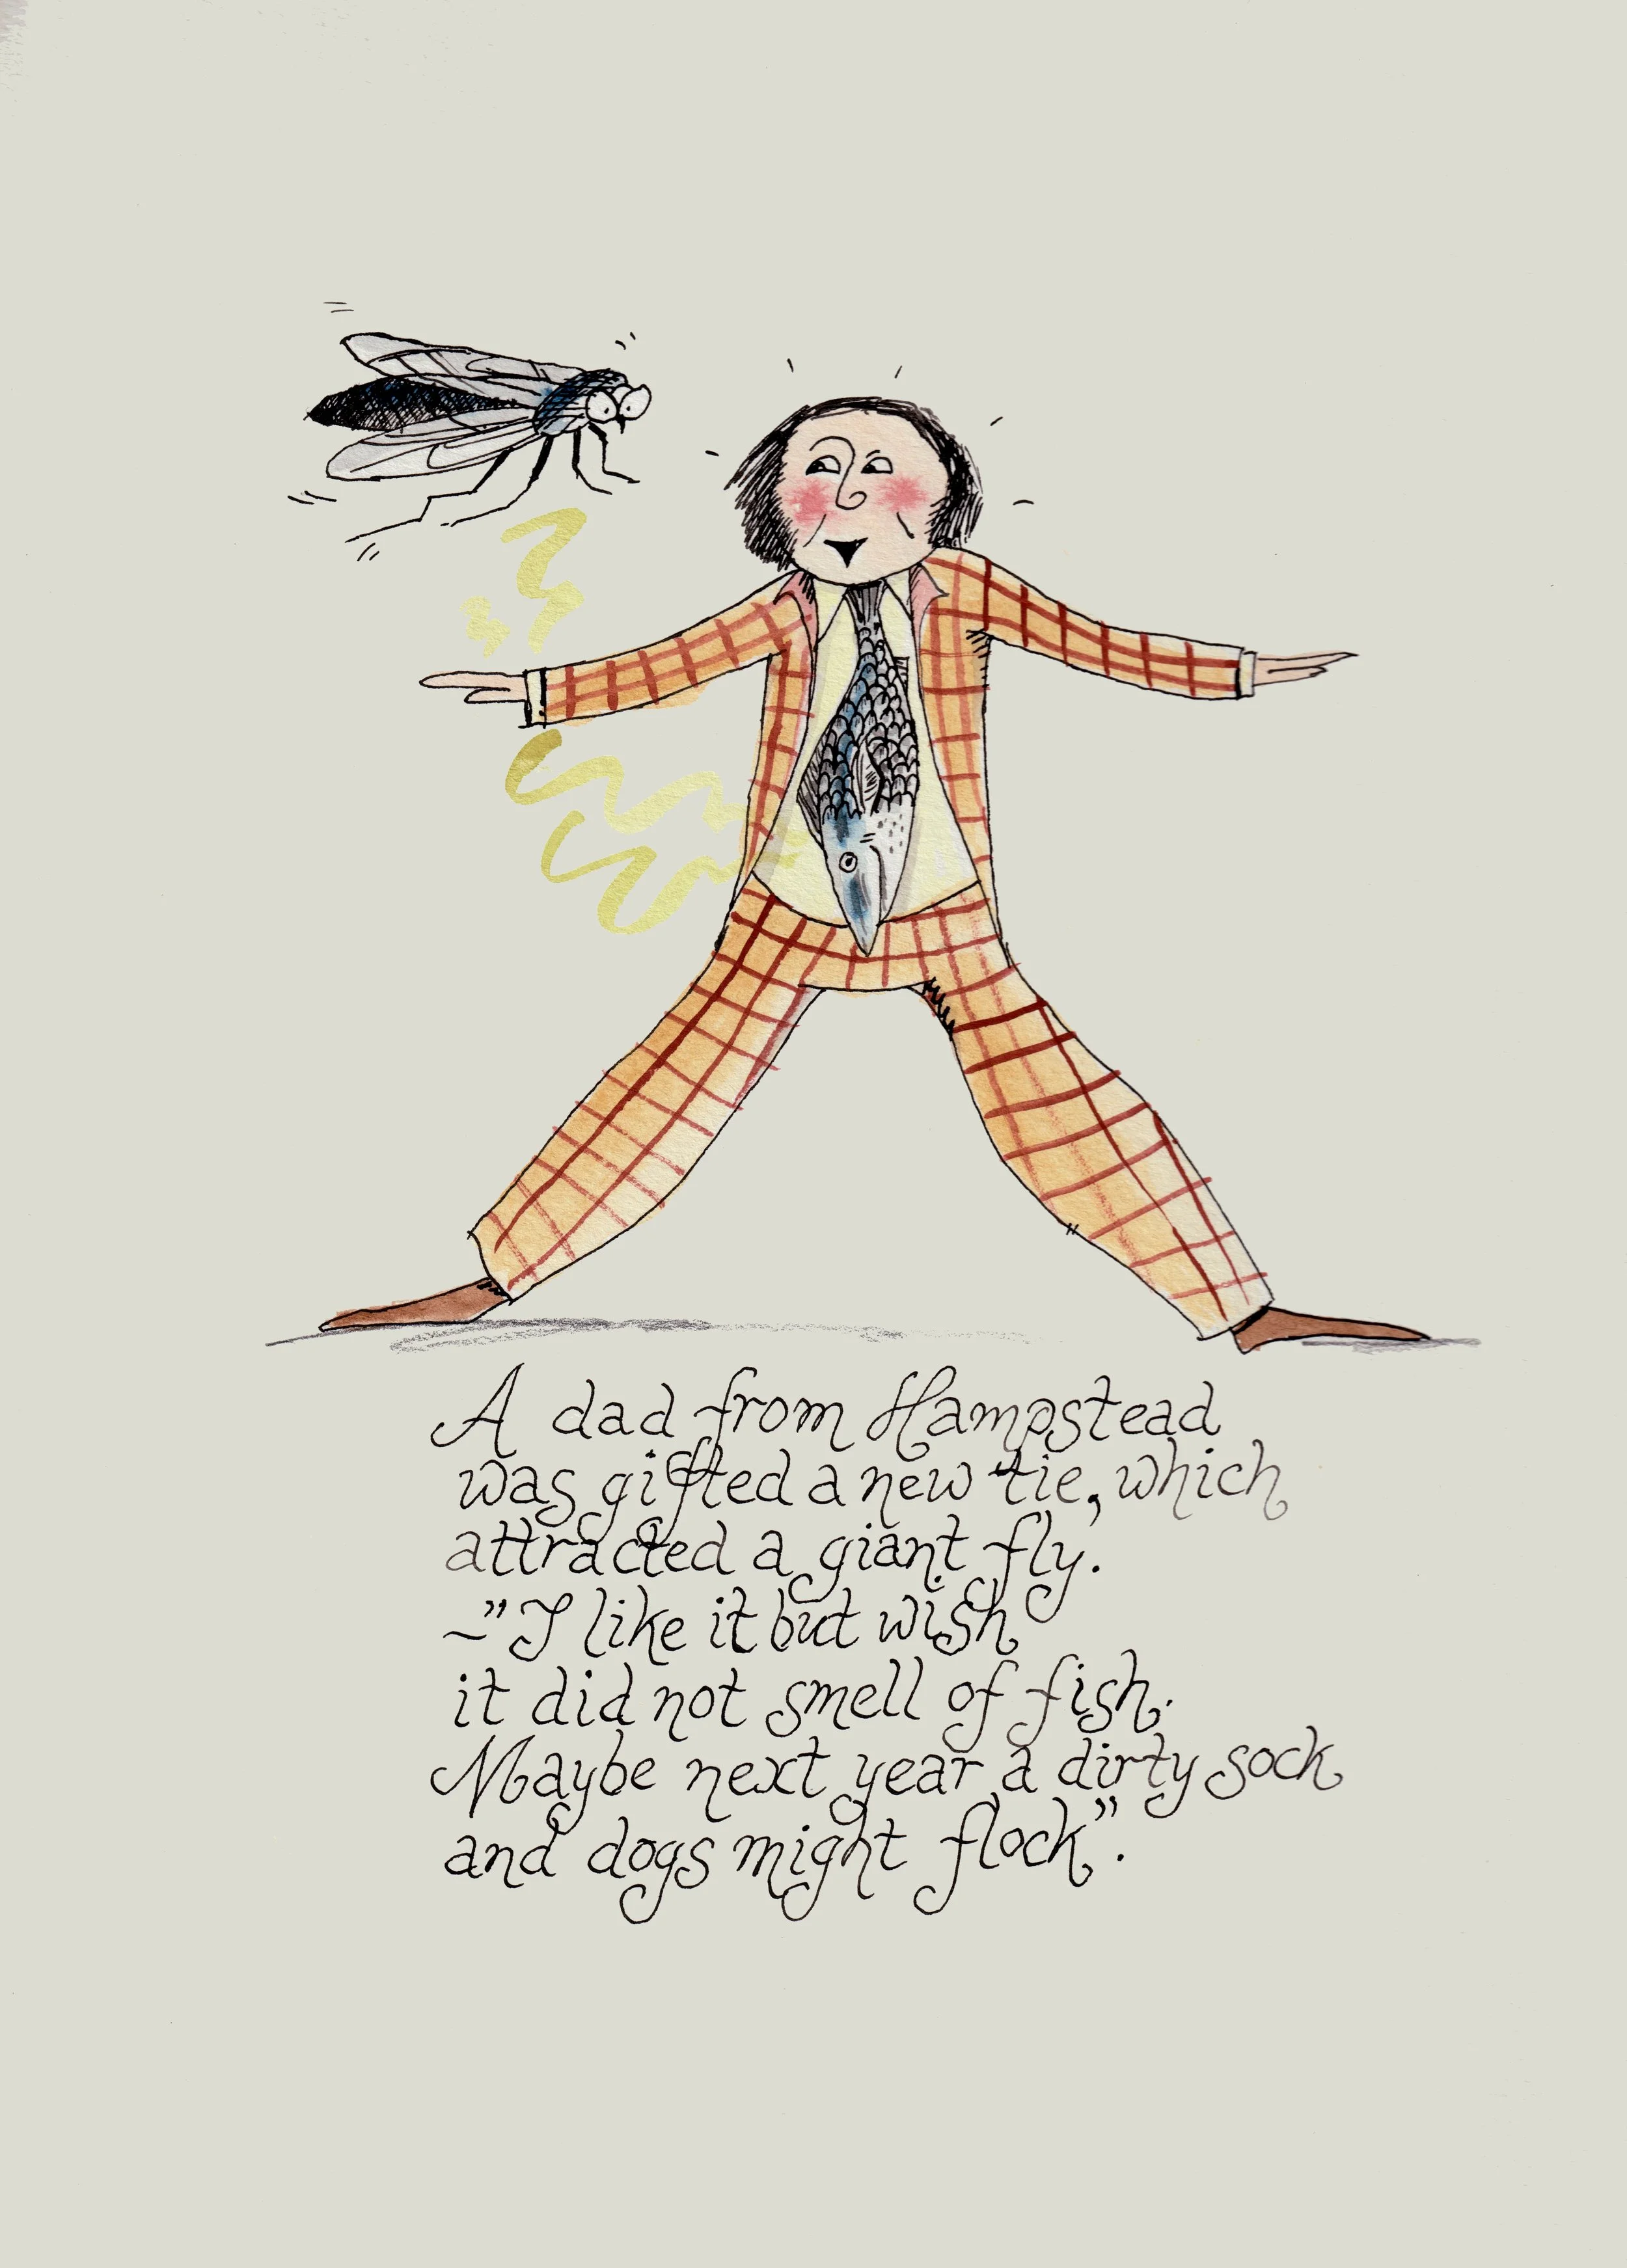 A dad from Hampstead
was gifted a new tie, which
attracted a giant fly.
~"I like it but wish
it did not smell of fish.
Maybe next year a dirty sock
and dogs might flock".